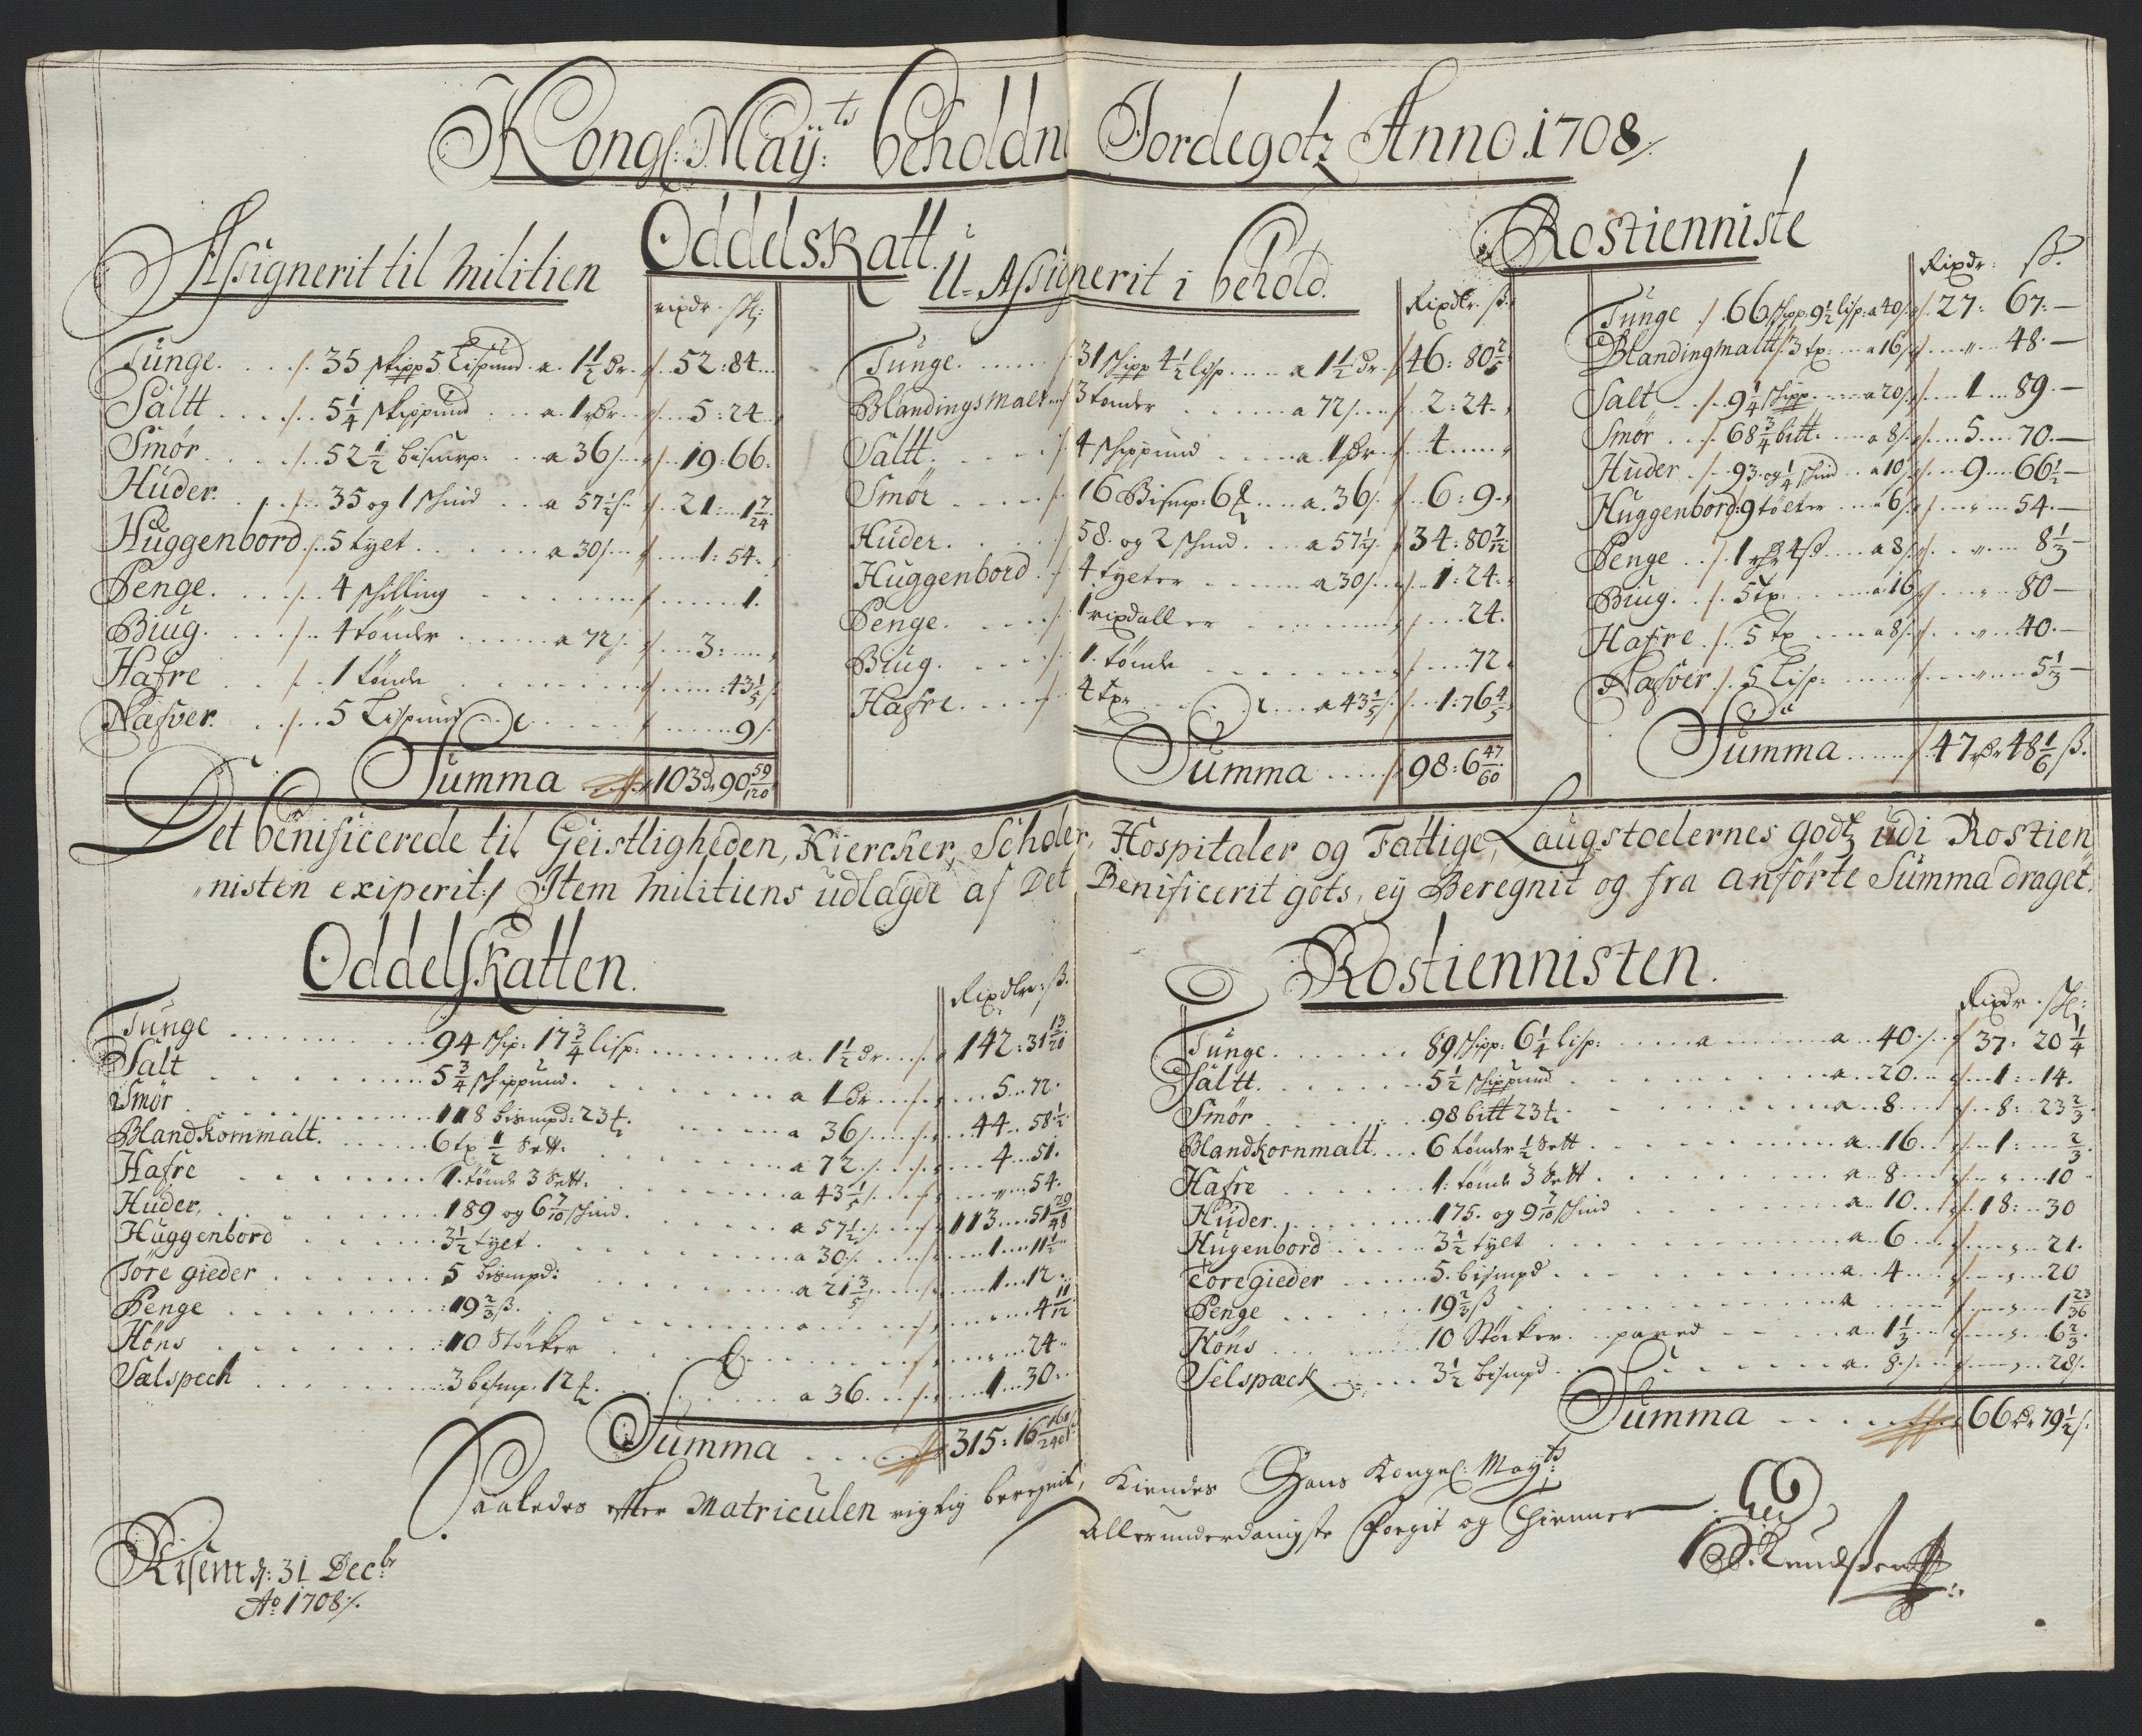 Kongl: Maÿ:ts beholdne Jordegotz Anno.1708/.
Oddelskatt.
Assignerit til Militien
rixdr. sk:
Tunge. . . /. 35 skipp 5 Lispund. a. 1½ dr. /. 52:84.
Saltt . . . /. 5¼ skippund . . a. 1 rdr. . . 5:24.
Smør . . . /. 52½ bismrp. . . a 36/. . . 19:66.
Huder. . . /. 35 og 1 schind . . a 57½/. . . 21: 1 7/24
Huggenbord /. 5 tyet . . . a 30/. . . 1:54.
Penge. . . /. 4 schilling . . . 1.
Biug. . . /. 4 tønder . . . a 72/. . . 3:
Hafre . . /. 1 tønde . . . :43 1/5/.
Nafver. . . /. 5 Lispund . . . 9/.
Summa 103 dr 90 59/120
U-Assignerit i behold.
Rixdlr. ß.
Tunge. . . . /. 31 schipp 4½ lisp. . . a 1½ dr. /. 46: 80 2/5
Blandingsmalt /. 3 tønder . . . a 72/. . . 2:24.
Saltt. . . . /. 4 schippund . . . a. 1 dr. /. 4.
Smør . . . /. 16 Bismp: 6 . . . a. 36/. . . 6:9.
Huder. . . . /. 58. og 2 schind. . . a 57½/. 34:80 7/12
Huggenbord . /. 4 tyeter . . . a 30/. . . 1:24.
Penge. . . . /. 1 rixdaller . . . 24.
Biug. . . . /. 1. tønde . . . 72
Hafre. . . . /. 4 tpr . . . a 43 1/5/. . . 1:76 4/5
Summa . . . . /. 98:6 47/60
Rostienniste
Rixdr: ß.
Tunge /. 66 schipp: 9½ lisp: a 40/. /. 27: 67:—
Blandingmaltt /. 3 tp: . . a 16/. . . " . . 48.—
Salt . . /. 9¼ schipp. . . a 20/. . . 1 . . 89.—
Smør . . /. 68¾ bitt. . . a 8/. . . 5 . . 70.—
Huder . /. 93. og ¼ schind . . a 10/. . . 9 . . 66½—
Huggenbord: 9 tøeter . . a 6/. . . " . . 54.—
Penge . . /. 1 rdr 4 ß . . a 8/. . . " . . 8⅓—
Biug. . /. 5 tp. . . a 16 . . " . . 80—
Hafre . /. 5 tp . . a 8/. . . " . . 40.—
Nafver /. 5 Lisp: . . . " . . 5⅓—
Summa . . . . /. 47 rdr 48 1/6 ß.
Det benificerede til Geistligheden, Kiercker, Scholer, Hospitaler og Fattige, Laugstoelernes godtz udi Rostien
"nisten exiperit:/ Item Militiens udlagde af Det Benificerit gots, eÿ Beregnit og fra anførte Summa draget.
Oddelskatten.
Rixdlr: ß.
Tunge . . . . 94 schp: 17¾ lisp: . . . a. 1½ dr. . . /. 142:31 13/20
Salt . . . . 5¾ schippund. . . . a 1 dr . . 5 . . 72.
Smør . . . . 118 bismpd: 23 . . . a 36/. . . 44 . . 58½
Blandkornmalt. . . . 6 tp ½ Sett. . . . a 72/. . . 4 . . 51.
Hafre . . . . 1. tønde 3 Sett. . . . a 43 1/5/. . . " . . 54.
Huder, . . . . 189 og 6 7/10 schind. . . . a 57½/. . . 113 . . 51 29/48
Huggenbord . . . . 3½ tyet . . . a 30/. . . 1 . . 11½
Tore gieder . . . . 5 bismpd: . . . a 21 3/5/. . . 1 . . 12.
Penge . . . . :19⅔ ß. . . . " . . 4 11/12
Høns . . . . :10 Støcker . . . " . . 24
Salspech . . . . 3 bismp. 12 . . . a 36. . . 1 . . 30.
Summa . . . . 315:16 161/240
Rostiennisten.
Rixdr. sk:
Tunge. . . . 89 schipp: 6¼ lisp: . . . a . . 40:/. 37: 20¼
Saltt. . . . 5½ schippund . . . a. . 20. . . 1: 14.
Smør . . . . 98 bitt 23 . . . a. . 8 . . 8: 23⅔
Blandkornmalt. . . . 6 tønder ½ Sett . . . a. . 16. . . 1: ⅔.
Hafre . . . . 1. tønde 3 Sett . . . a. . 8 . . " . . 10
Huder. . . . 175. og 9 7/10 schind . . . a. . 10. . . 18: 30
Hugenbord . . . . 3½ tylt . . . a. . 6 . . " . . 21.
Toregieder . . . . 5. bismpd . . . a. . 4 . . " . . 20
Penge . . . . 19⅔ ß . . . a . . " . . 1 23/36
Høns . . . . 10 Støcker. . . . a. . 1⅓ . . " . . 6⅔.
Selspæck . . . . 3½ bismpd . . . a. 8:/. . . " . . 28/.
Summa . . . . 66 dr 79½/.
Saaledes efter Matriculen rigtig beregnit, Kiendes Hans Kongel: Maÿts:
Allerunderdanigste Foegit og Thienner
Risem d: 31 Decbr
Ao 1708/.
Knudsen